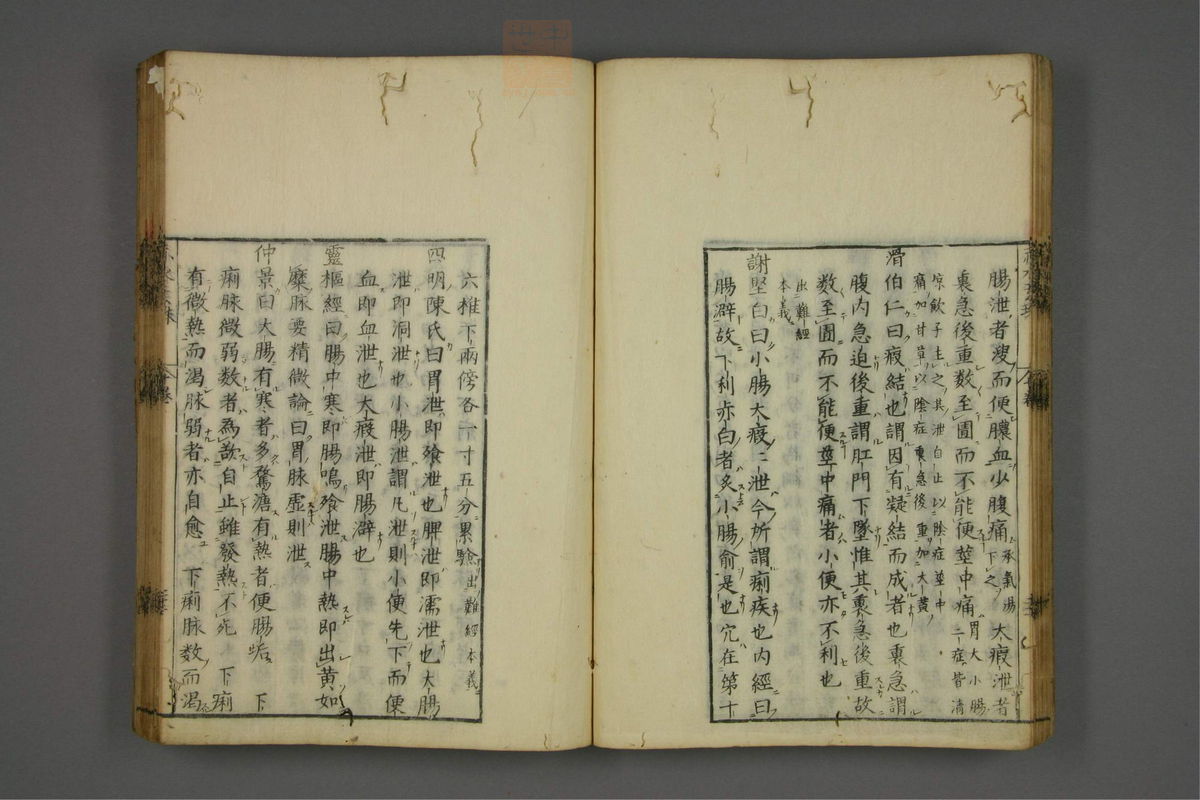 腸泄者溲而便膿血少腹痛承氣湯下之大瘕泄者
裏急後重数至圊而不能便莖中痛胃大小腸二症皆清
凉飲子主之其泄自止以陰症莖中
痛加甘草以陰症裏急後重加大黄
滑伯仁曰瘕結也謂因有凝結而成者也裏急謂
腹内急迫後重謂肛門下墜惟其裏急後重故
数至圊而不能便莖中痛者小便亦不利也
出難經
本義
謝堅白曰小腸大瘕二泄今所謂痢疾也内經曰
腸澼故下利赤白者灸小腸俞是也穴在第十
六椎下兩傍各一寸五分累驗出難經本義
四明陳氏曰胃泄即飱泄也脾泄即濡泄也大腸
泄即洞泄也小腸泄謂凡泄則小便先下而便
血即血泄也大瘕泄即腸澼也
靈樞經曰腸中寒即腸鳴飱泄腸中熱即出黄如
糜脉要精微論曰胃脉虚則泄
仲景曰大腸有寒者多鶩溏有熱者便腸垢 下
痢脉微弱数者為欲自止雖發熱不死 下痢
有微熱而渇脉弱者亦自愈 下痢脉数而渇